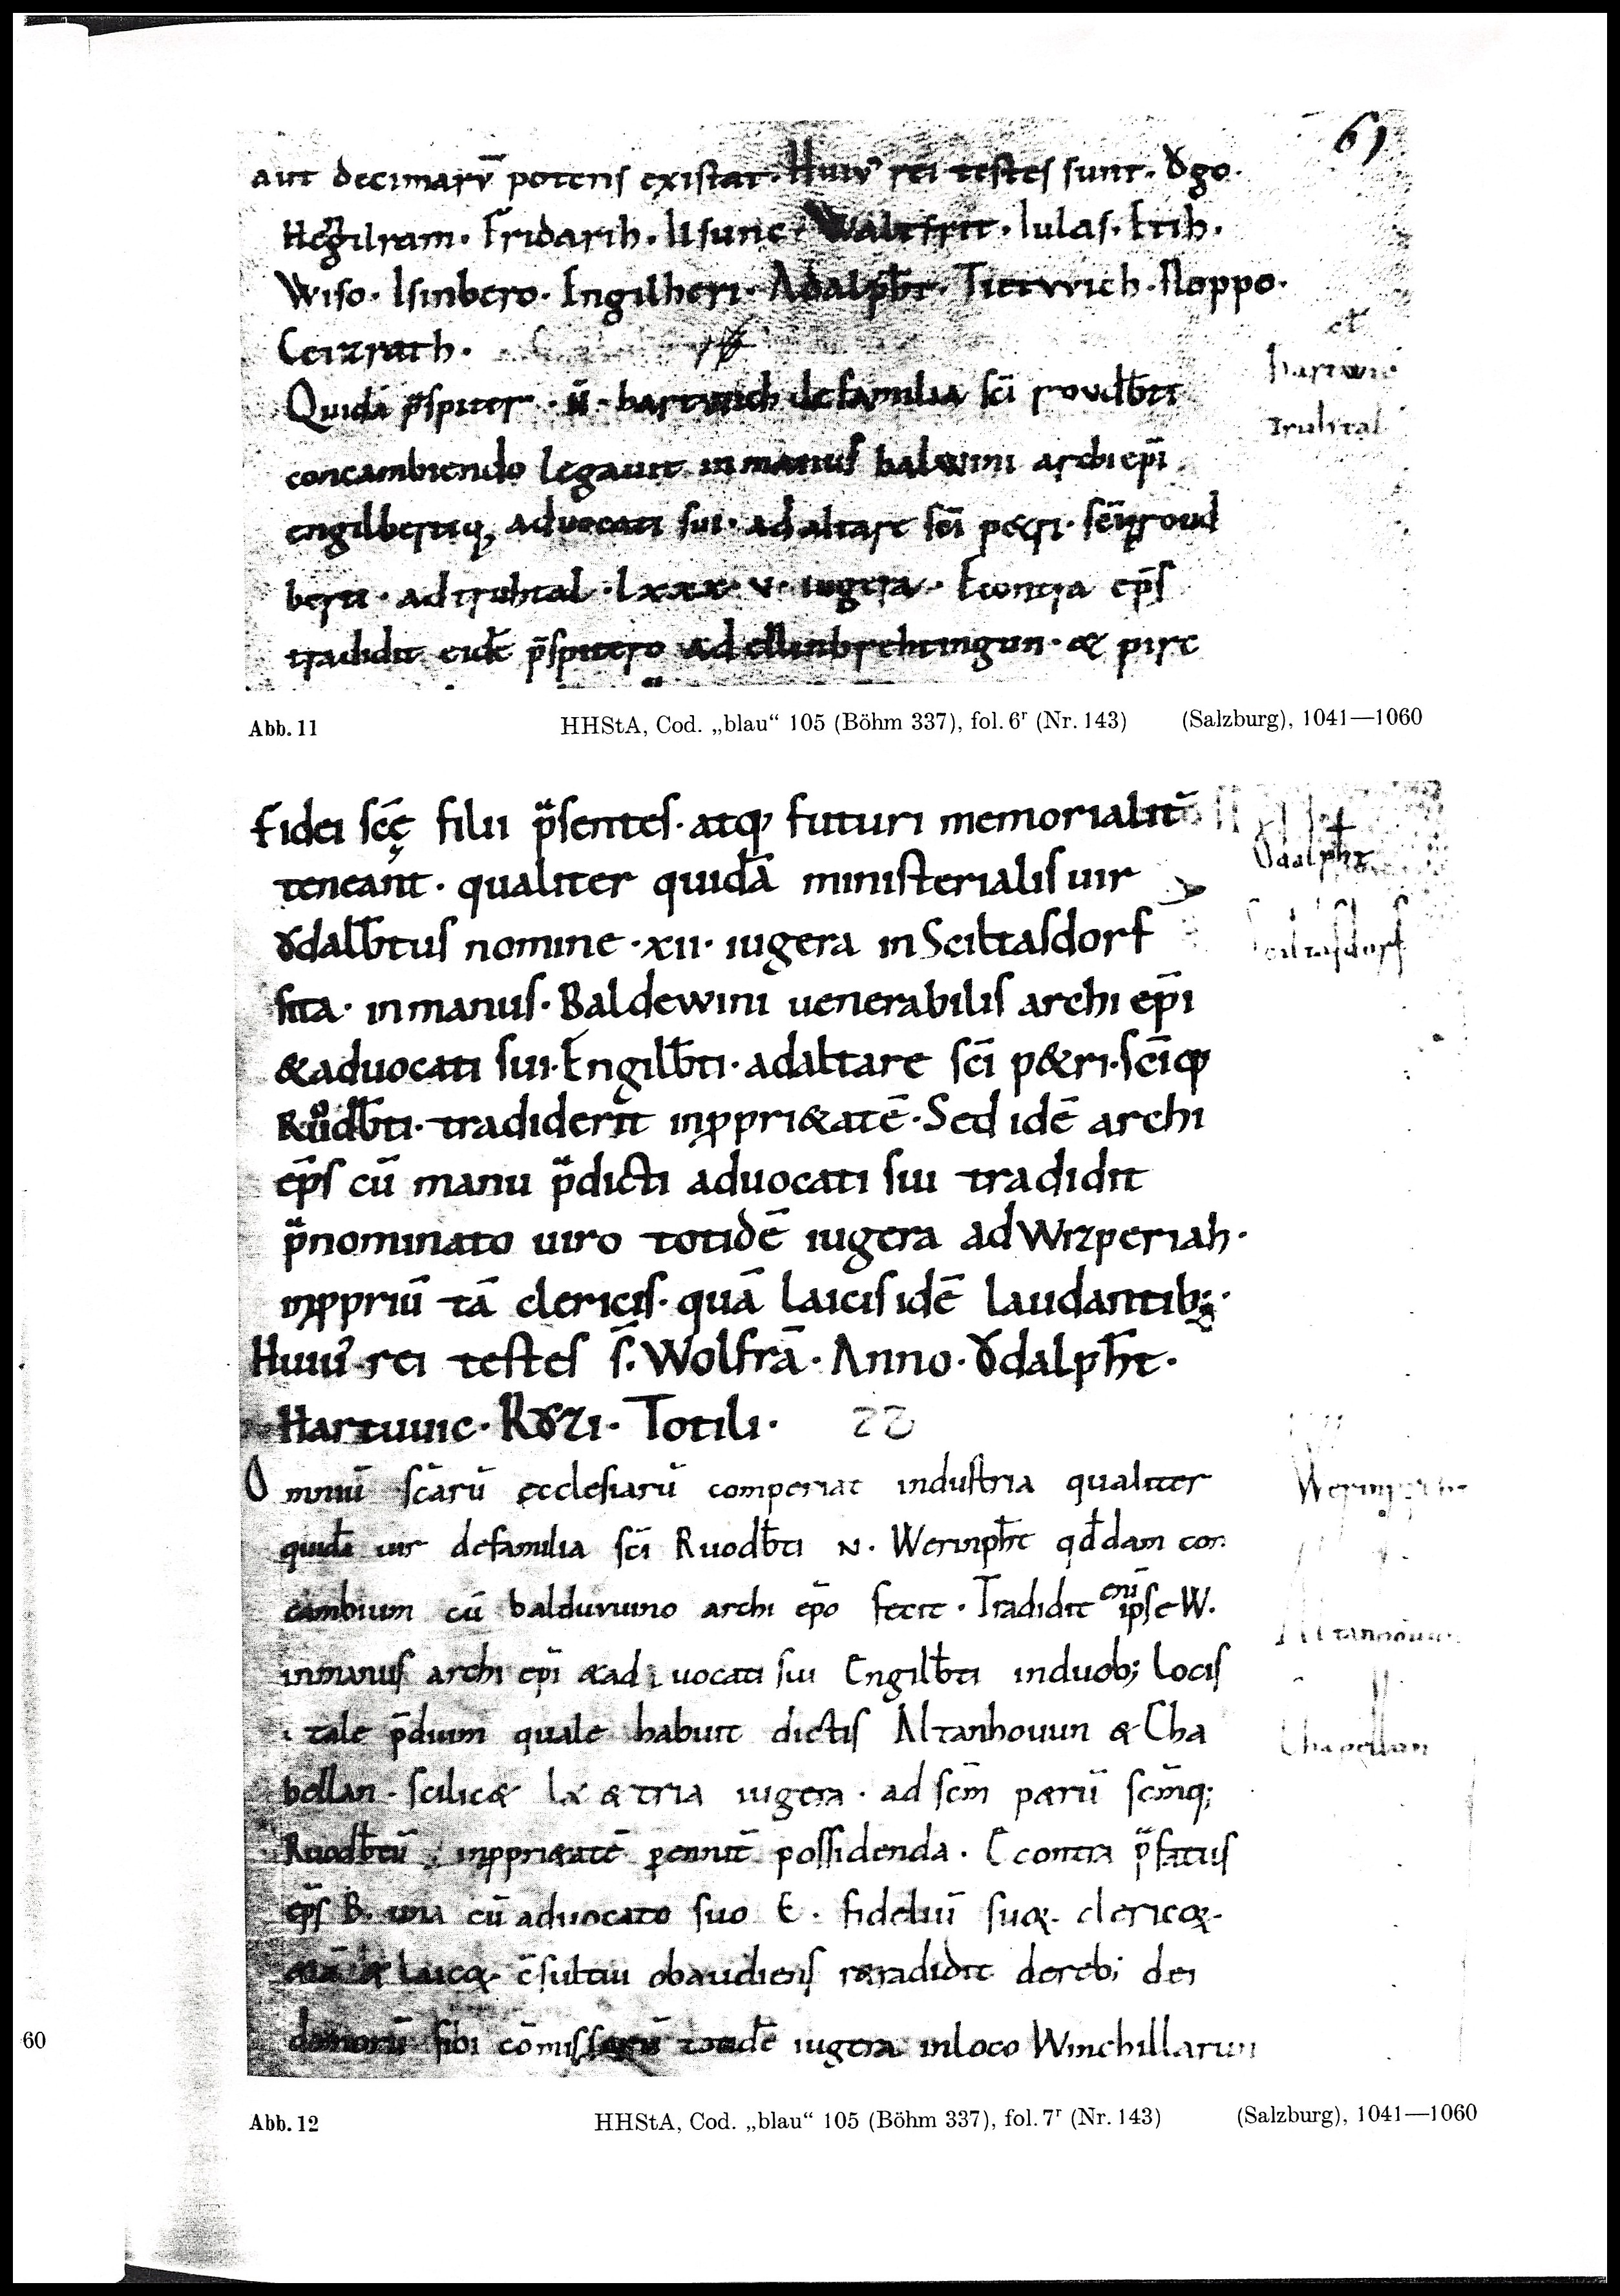 61
aut decimarū potens existat. Huiꝰ rei testes sunt. Ŏgo.
Hegilram. Fridarih. Ilsunc. Waltfrit. lulas. Etih.
Wiso. Isinbero. Engilheri. Adalpħt. Tietvvich. Noppo.
Ceizrath.
Quidā p̄sbiter . N̄ . hartwich de familia sc̄i roudb̄ti
concambiendo legauit in manus balwini archiep̄i
engilbertiq; aduocati sui. ad altare sc̄i p&ri. sc̄iq; roud
berti. ad truhtal. lxxx. v. iugera. Econtra ep̄s
tradidit eidē p̄sbitero ad ellinbrehtingun. & pirc
et
hartwic
truhtal
Abb. 11 HHStA, Cod. „blau“ 105 (Böhm 337), fol. 6r (Nr. 143) (Salzburg), 1041—1060
Fidei sc̄ę filii p̄sentes. atq; futuri memorialit̄
teneant. qualiter quidā ministerialis uir
Ŏdalb̄tus nomine .xii. iugera in Sciltasdorf
sita. in manus. Baldewini uenerabilis archi ep̄i
& aduocati sui. Engilb̄ti. ad altare sc̄i p&ri. sc̄iq;
Růdb̄ti. tradiderit̄ in ꝓpri&atē. Sed idē archi
ep̄s cū manu p̄dicti aduocati sui tradidit
p̄nominato uiro totidē iugera ad Wizperiah.
in ꝓpriū tā clericis. quā laicis idē laudantib;
Huiꝰ rei testes s̄. Wolfrā. Anno. Ŏdalpħt.
Hartuuic. Rŏzi. Totili. 22
Ŏdalpħt
Sciltasdorf
Omniū sc̄arū ęcclesiarū comperiat industria qualiter
quidā uir de familia sc̄i Ruodb̄ti N. Werinpħt qd̄dam con
cambium cū balduuino archi ep̄o fecit. Tradidit eni̅ ipse W.
in manus archi ep̄i & ad uocati sui Engilb̄ti in duob; locis
tale p̄dium quale habuit dictis Altanhouun & Cha
bellan. scilic& lx & tria iugera. ad sc̄m p&rū sc̄mq;
Ruodb̄tū in ꝓpri&atē ꝑennit̄ possidenda. Econtra p̄fatus
ep̄s B. una cū aduocato suo E. fideliū suoꝝ. clericoꝝ.
& laicoꝝ c̄sultui obaudiens r&radidit de reb; dei
donorū sibi cōmissarū totidē iugera in loco Winchillarun
Altanhouun
Chapellan
60
Abb. 12 HHStA, Cod. „blau“ 105 (Böhm 337), fol. 7r (Nr. 143) (Salzburg), 1041—1060